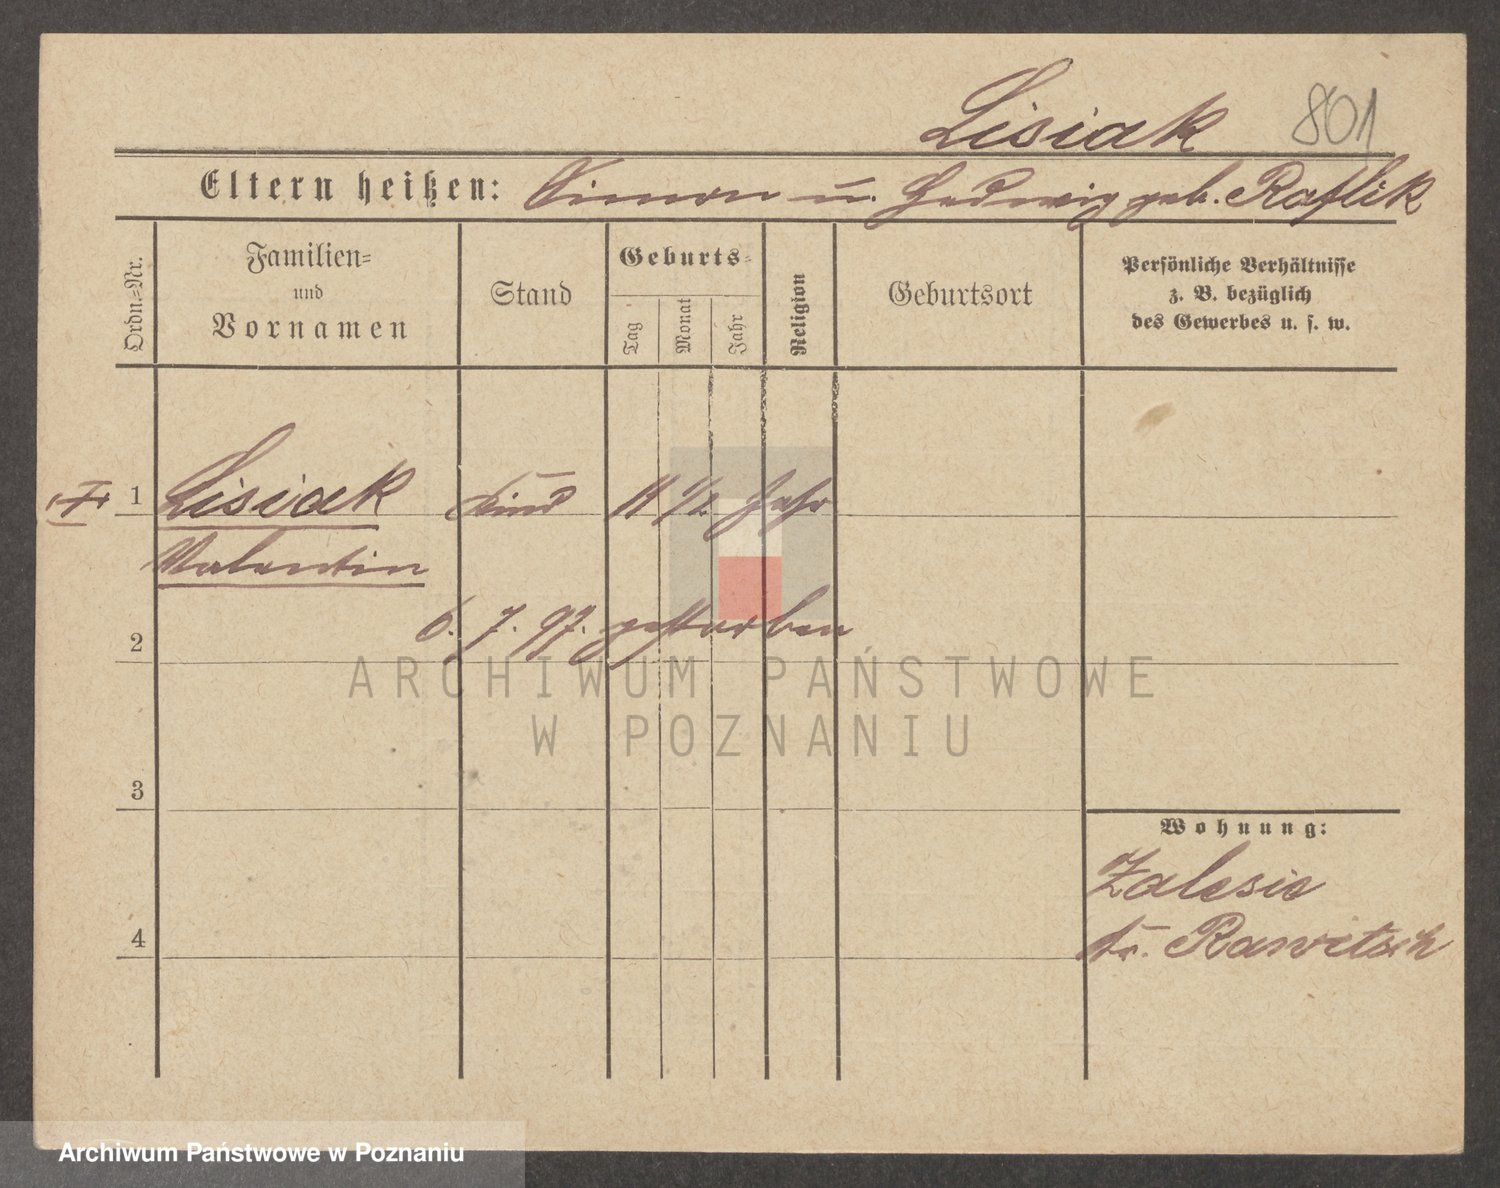 Lisiak 801
Eltern heißen: Simon u. Hedwig geb. Raflik
Ordn.=Nr.
Familien=
und
Vornamen
Stand
Geburts=
Tag
Monat
Jahr
Religion
Geburtsort
Persönliche Verhältnisse
z. B. bezüglich
des Gewerbes u. s. w.
1 Lisiak Kind 11 1/2 Jahr
Valentin
6. 7. 97. gestorben
2
ARCHIWUM PAŃSTWOWE
W POZNANIU
3
Wohnung:
Zalesie
4
Kr. Rawitsch
Archiwum Państwowe w Poznaniu